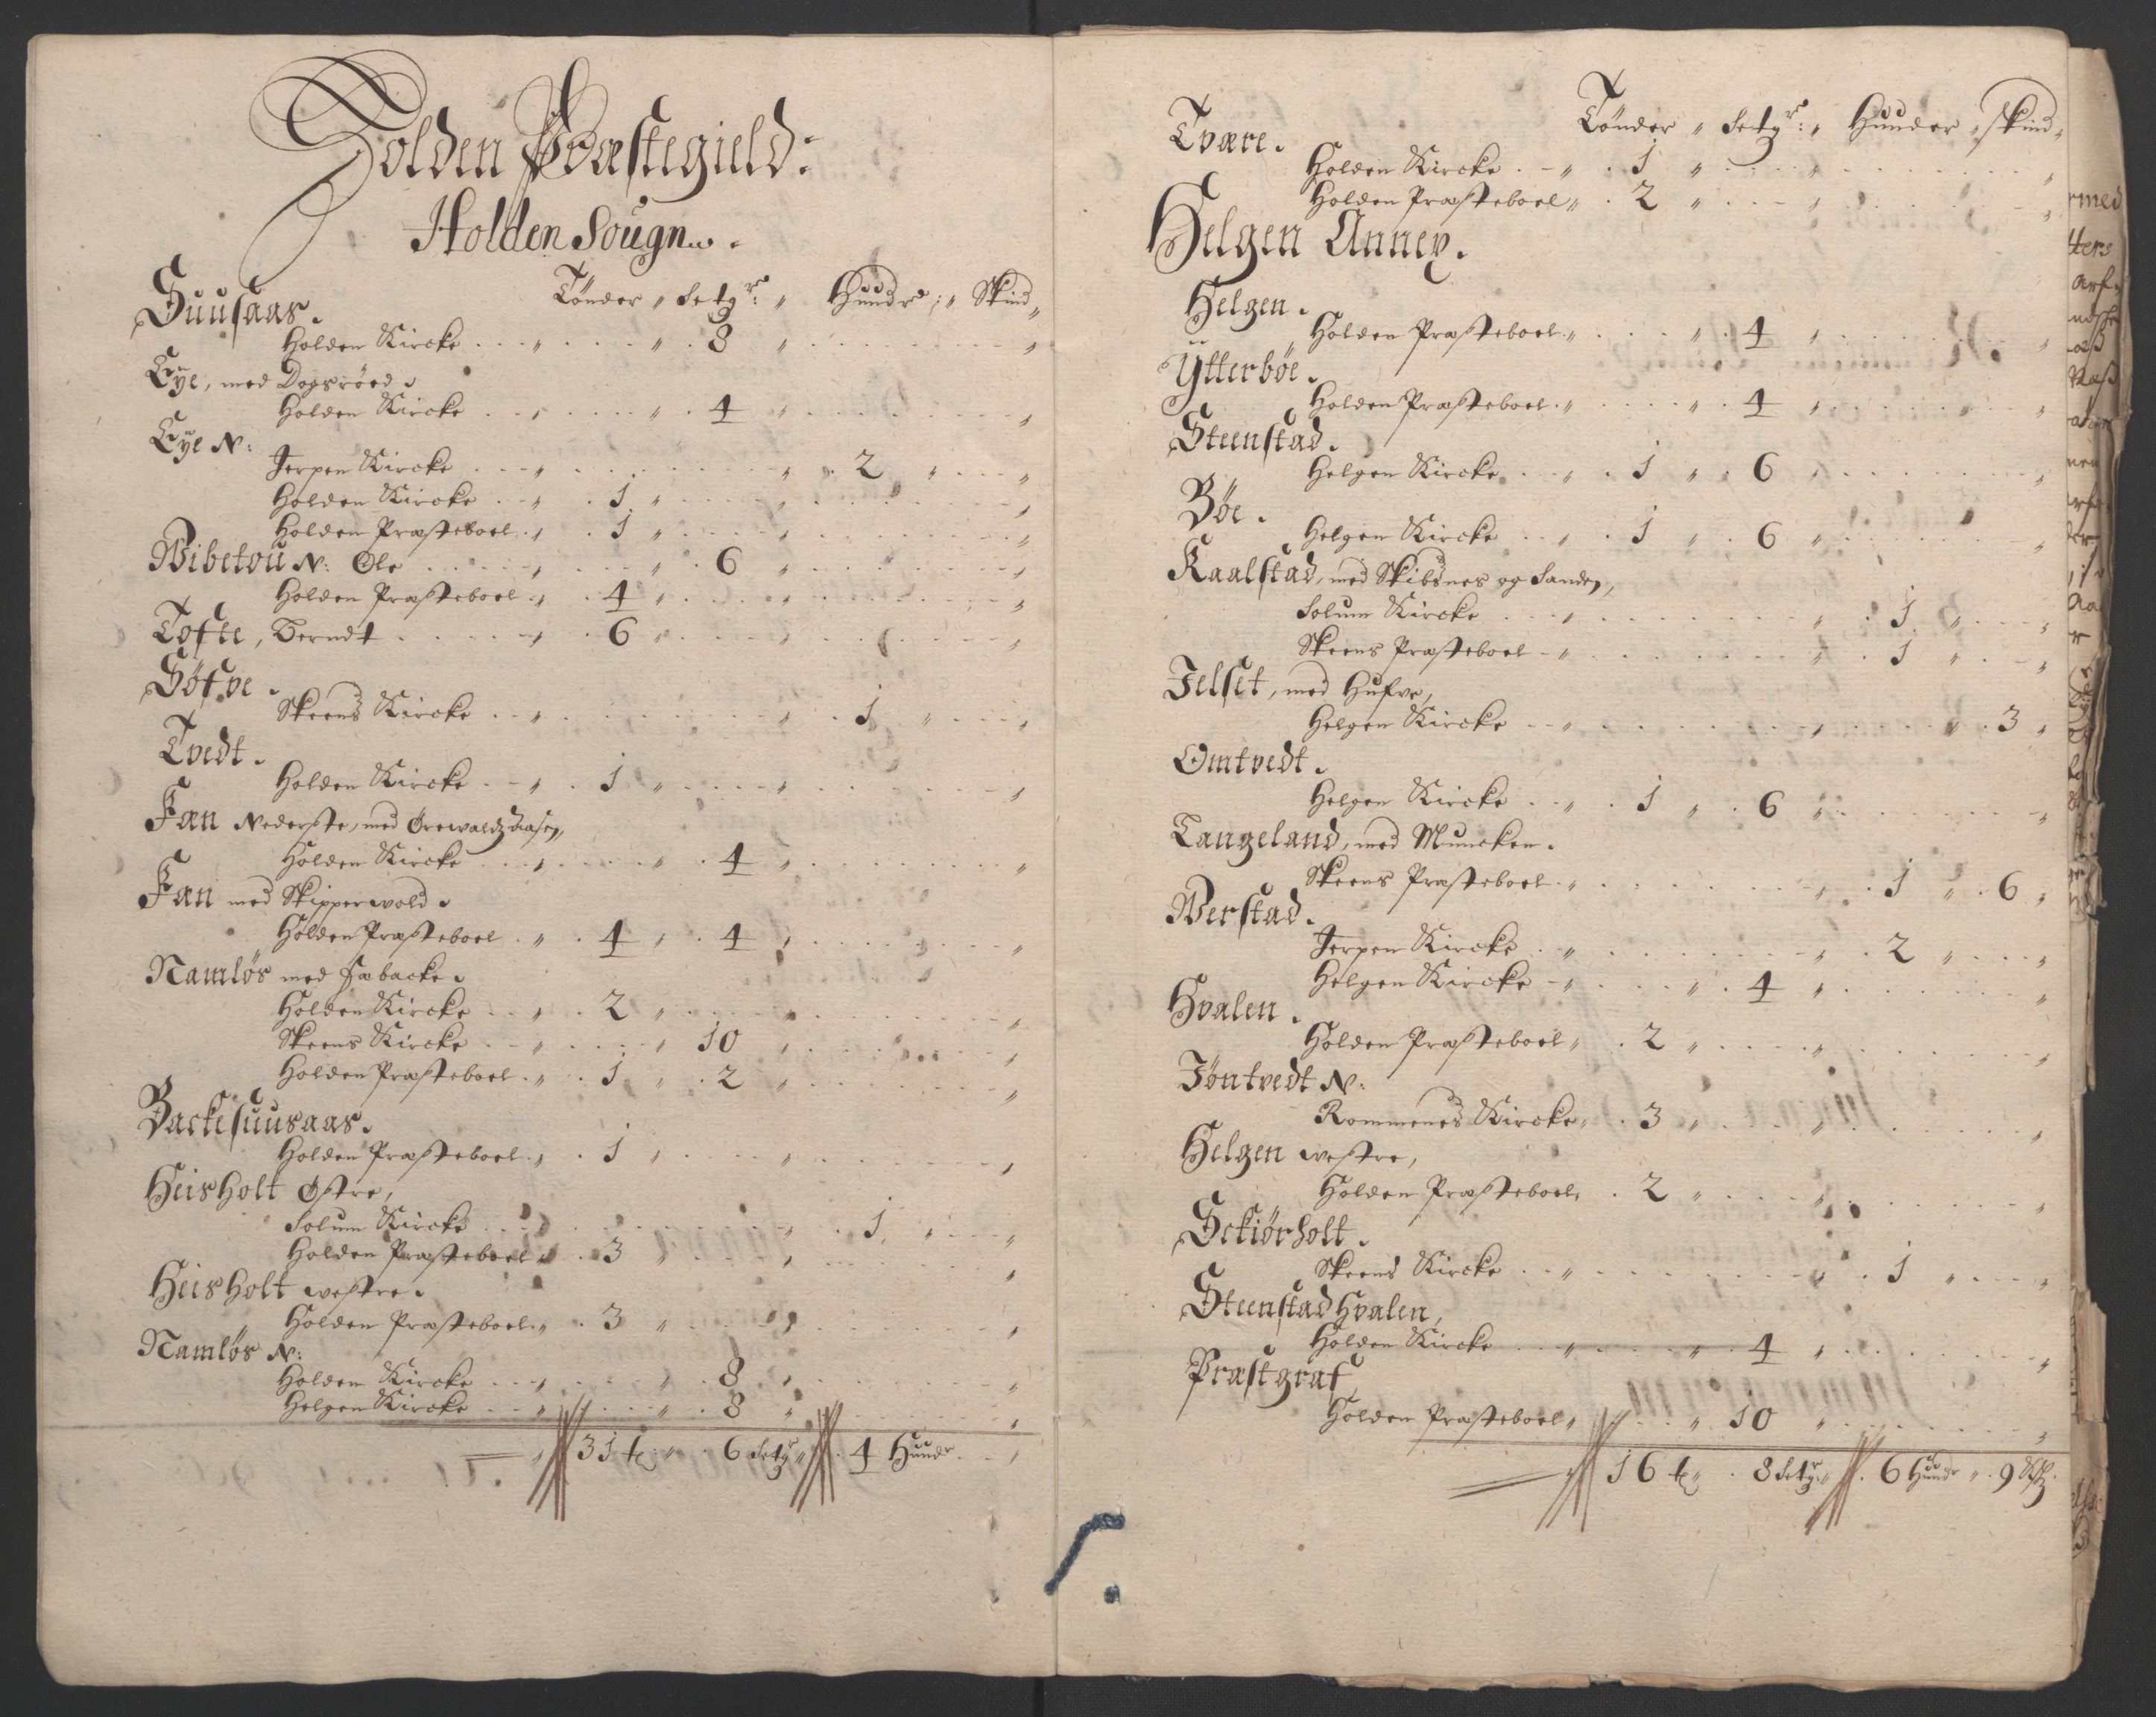 Holden Præstegield:
Holden Sougn.
Tønder " Setgr: " Hundr: " Skind "
Suusaas.
Holden Kircke " " 8 " "
Eye, med Dogsröed.
Holden Kircke " " 4 " "
Eye N:
Jerpen Kircke " " 2 " "
Holden Kircke " 1 " " "
Holden Præsteboel " 1 " " "
Wibetou N: Ole " " 6 " "
Holden Præsteboel " 4 " " "
Tofte, Berndt " 6 " " "
Söfve.
Skeens Kircke " " 1 " "
Tvedt.
Holden Kircke " 1 " " "
Fæn Nederste, med
Holden Kircke " " 4 " "
Fæn med Skipperwold.
Holden Præsteboel " 4 " 4 " "
Namlös med Fæbacke.
Holden Kircke " 2 " " "
Skeens Kircke " " 10 " "
Holden Præsteboel " 1 " 2 " "
Backesuusaas.
Holden Præsteboel " 1 " " "
Heisholt Østre,
Solum Kircke " 1 " "
Holden Præsteboel " 3 " " "
Heisholt westre.
Holden Præsteboel " 3 " " "
Namlös N:
Holden Kircke " " 8 " "
Helgen Kircke " " 8 " "
" 31 t " 6 Setgr " 4 Hundr "
Tönder " Setgr: " Hunder " Skind "
Tvære.
Holden Kircke " 1 " " "
Holden Præsteboel " 2 " " "
Helgen Annex.
Helgen.
Holden Præsteboel " " 4 " "
Ytterböe.
Holden Præsteboel " " 4 " "
Steenstad.
Helgen Kircke " 1 " 6 " "
Böe.
Helgen Kircke " 1 " 6 " "
Kaalstad, med Skibsnes og Sanden,
Solum Kircke " " 1 " "
Skeens Præsteboel " " 1 " "
Jelset, med Hufve,
Helgen Kircke " " " 3 "
Omtvedt.
Helgen Kircke " 1 " 6 " "
Langeland, med Muncken.
Skeens Præsteboel " " 1 " 6 "
Werstad.
Jerpen Kircke " " 2 " "
Helgen Kircke " " 4 " "
Hvalen.
Holden Præsteboel " 2 " " "
Jöntvedt N:
Rommenes Kircke " 3 " " "
Helgen westre,
Holden Præsteboel " 2 " " "
Sckiörholt.
Skeens Kircke " " 1 " "
Steenstad Hvalen,
Holden Kircke " " 4 " "
Præstgraf,
Holden Præsteboel " " 10 " "
" 16 t " 8 Setgr " 6 Hundr " 9 Sk